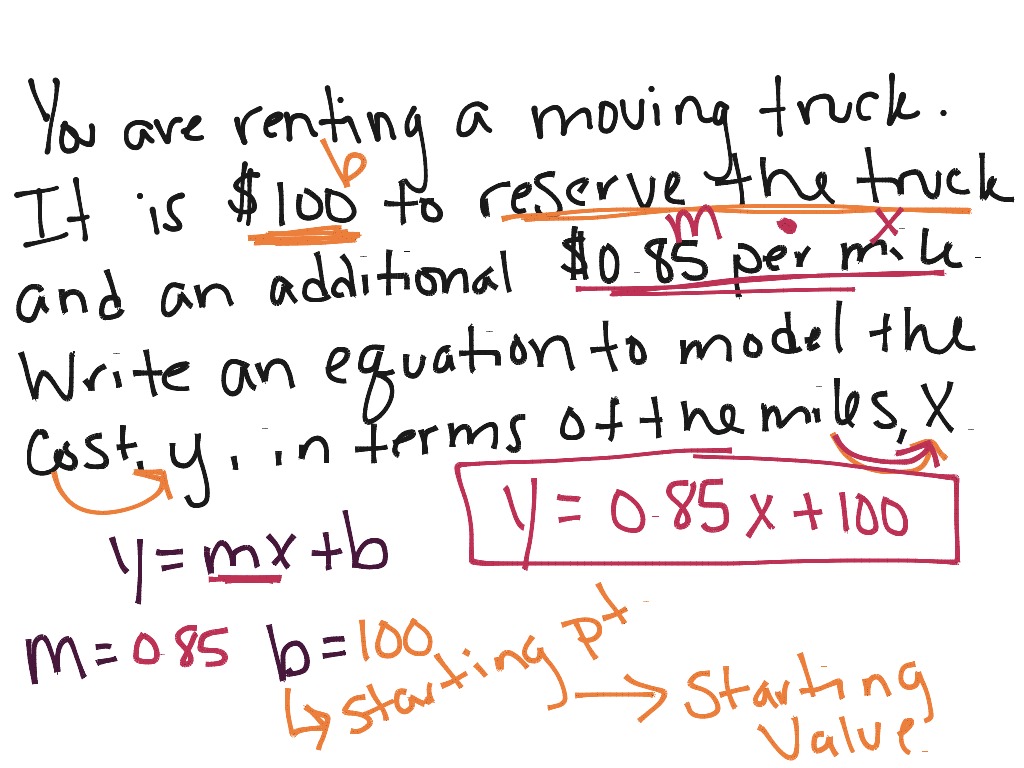 You are renting a moving truck.
b
It is $100 to reserve the truck
m • x
and an additional $0.85 per mile.
Write an equation to model the
cost, y, in terms of the miles, X.
y = 0.85x + 100
y = mx + b
m = 0.85 b = 100
↳ starting pt → starting
value